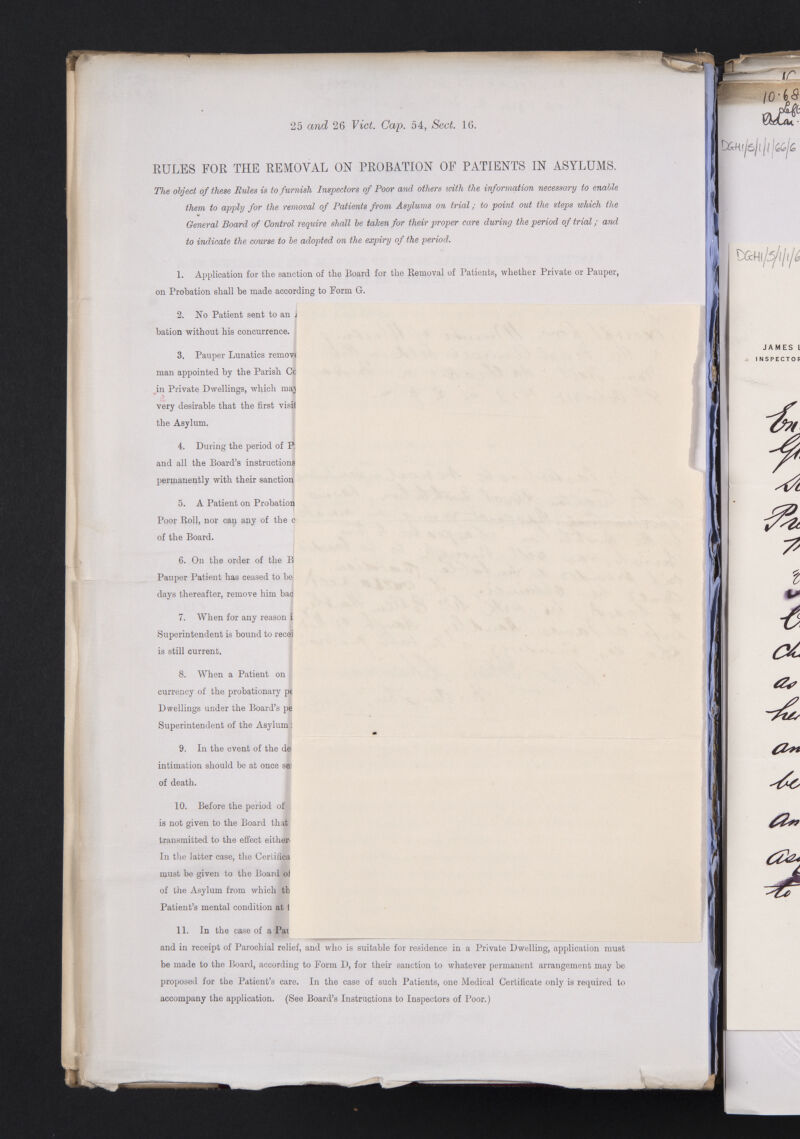 25 and 26 Vict. Cap. 54, Sect. 16.
RULES FOR THE REMOVAL ON PROBATION OF PATIENTS IN ASYLUMS.
The object of these Rules is to furnish Inspectors of Poor and others with the information necessary to enable
them to apply for the removal of Patients from Asylums on trial; to point out the steps which the
General Board of Control require shall be taken for their proper care during the period of trial; and
to indicate the course to be adopted on the expiry of the period.
1. Application for the sanction of the Board for the Removal of Patients, whether Private or Pauper,
on Probation shall be made according to Form G.
2. No Patient sent to an
bation without his concurrence.
3. Pauper Lunatics remov
man appointed by the Parish C
in Private Dwellings, which may
very desirable that the first visit
the Asylum.
4. During the period of P
and all the Board's instructions
permanently with their sanction
5. A Patient on Probation
Poor Roll, nor can any of the c
of the Board.
6. On the order of the B
Pauper Patient has ceased to be
days thereafter, remove him bac
7. When for any reason i
Superintendent is bound to recei
is still current.
8. When a Patient on
currency of the probationary pe
Dwellings under the Board's pe
Superintendent of the Asylum
9. In the event of the de
intimation should be at once se
of death.
10. Before the period of
is not given to the Board that
transmitted to the effect either
In the latter case, the Certifica
must be given to the Board of
of the Asylum from which th
Patient's mental condition at t
11. In the case of a Pau
and in receipt of Parochial relief, and who is suitable for residence in a Private Dwelling, application must
be made to the Board, according to Form D, for their sanction to whatever permanent arrangement may be
proposed for the Patient's care. In the case of such Patients, one Medical Certificate only is required to
accompany the application. (See Board's Instructions to Inspectors of Poor.)
DGH1/5/1/1/66/6
DGH1/5/1/1/6
JAMES
INSPECTOR
as
her
an
be
an
to